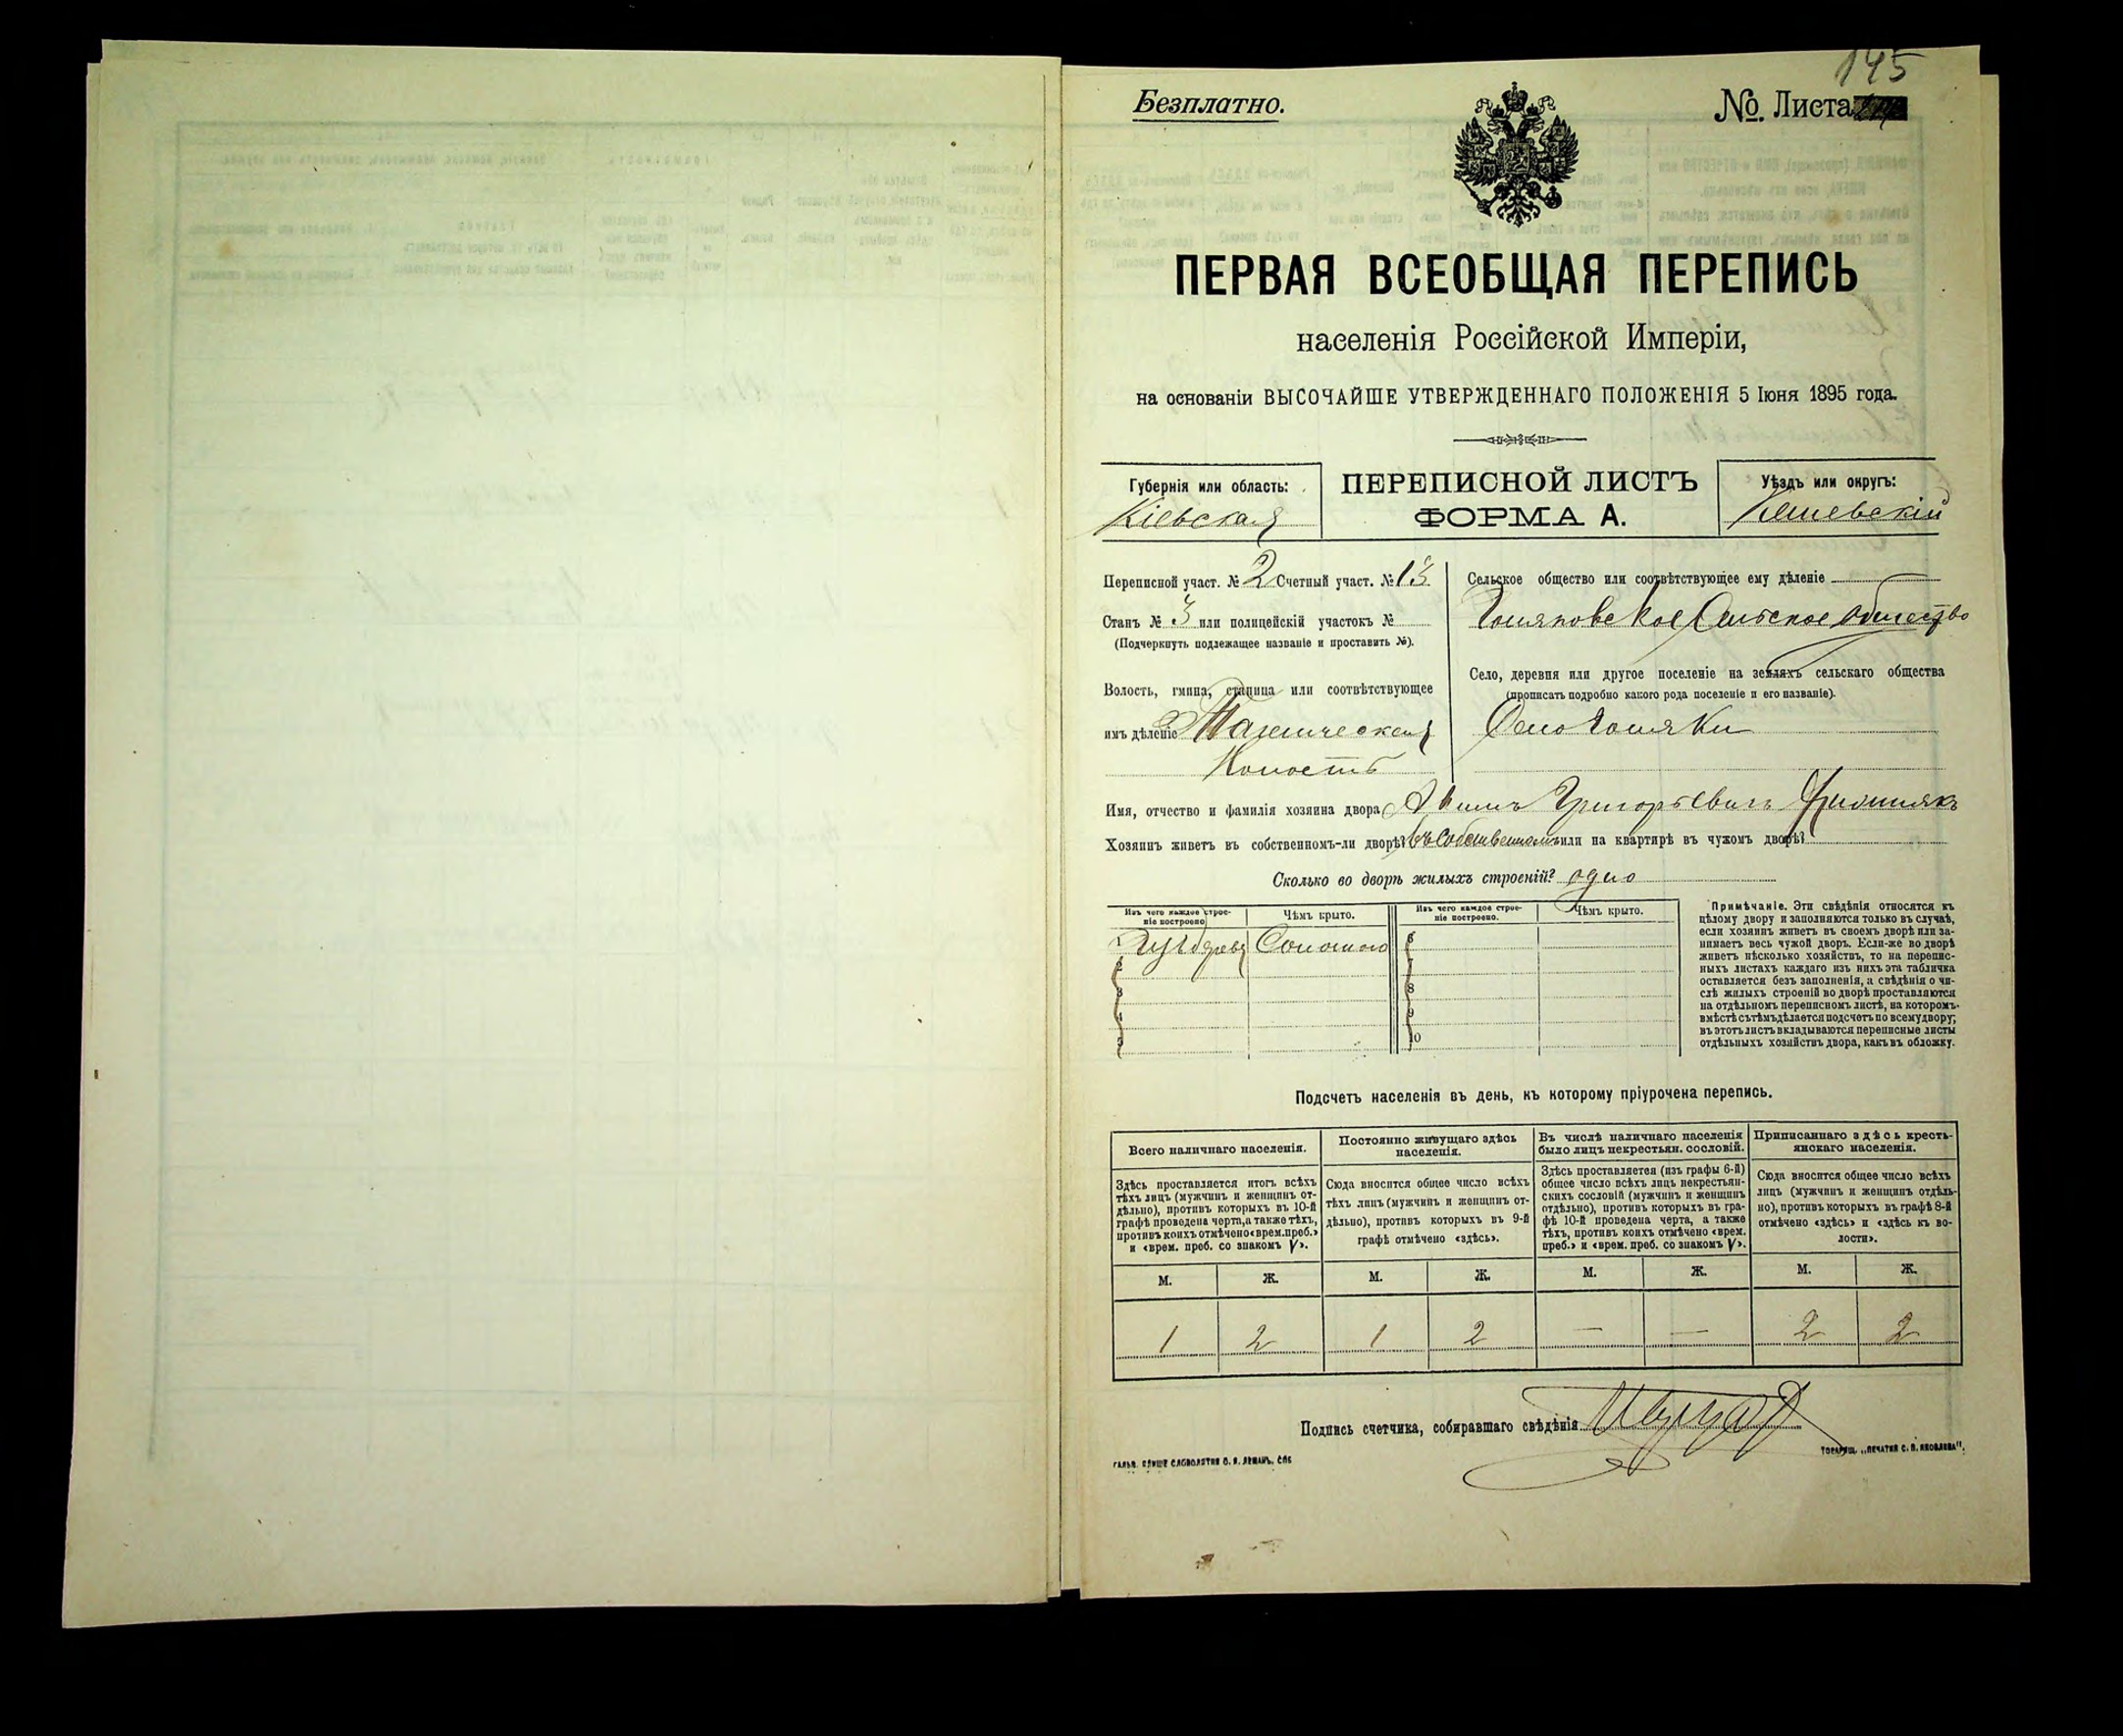 145
Безплатно.
№ Листа
ПЕРВАЯ ВСЕОБЩАЯ ПЕРЕПИСЬ
населенія Россійской Имперіи,
на основаніи ВЫСОЧАЙШЕ УТВЕРЖДЕННАГО ПОЛОЖЕНІЯ 5 Іюня 1895 года.
Губернія или область:
Кіевская
ПЕРЕПИСНОЙ ЛИСТЪ
ФОРМА А.
Уѣздъ или округъ:
Переписной участ. № 2 Счетный участ. № 13
Станъ № 3 или полицейскій участокъ №
(Подчеркнуть подлежащее названіе и проставить №).
Волость, гмина, станица или соотвѣтствующее
имъ дѣленіе
Сельское общество или соотвѣтствующее ему дѣленіе
Сельское общество
Село, деревня или другое поселеніе на земляхъ сельскаго общества
(прописать подробно какого рода поселеніе и его названіе).
Село
Имя, отчество и фамилія хозяина двора Григорьевичъ
Хозяинъ живетъ въ собственномъ-ли дворѣ? въ собственномъ или на квартирѣ въ чужомъ дворѣ?
Сколько во дворѣ жилыхъ строеній? одно
Изъ чего каждое строе-
ніе построено
Чѣмъ крыто.
Изъ чего каждое строе-
ніе построено.
Чѣмъ крыто.
1 Соломою
2
3
4
5
6
7
8
9
10
Примѣчаніе. Эти свѣдѣнія относятся къ
цѣлому двору и заполняются только въ случаѣ,
если хозяинъ живетъ въ своемъ дворѣ или за-
нимаетъ весь чужой дворъ. Если-же во дворѣ
живетъ нѣсколько хозяйствъ, то на перепис-
ныхъ листахъ каждаго изъ нихъ эта табличка
оставляется безъ заполненія, а свѣдѣнія о чи-
слѣ жилыхъ строеній во дворѣ проставляются
на отдѣльномъ переписномъ листѣ, на которомъ-
вмѣстѣ съ тѣмъ дѣлается подсчетъ по всему двору;
въ этотъ листъ вкладываются переписные листы
отдѣльныхъ хозяйствъ двора, какъ въ обложку.
Подсчетъ населенія въ день, къ которому пріурочена перепись.
Всего наличнаго населенія.
Постоянно живущаго здѣсь
населенія.
Въ числѣ наличнаго населенія
было лицъ некрестьян. сословій.
Приписаннаго здѣсь кресть-
янскаго населенія.
Здѣсь проставляется итогъ всѣхъ
тѣхъ лицъ (мужчинъ и женщинъ от-
дѣльно), противъ которыхъ въ 10-й
графѣ проведена черта, а также тѣхъ,
противъ коихъ отмѣчено «врем. преб.»
и «врем. преб. со знакомъ V».
Сюда вносится общее число всѣхъ
тѣхъ лицъ (мужчинъ и женщинъ от-
дѣльно), противъ которыхъ въ 9-й
графѣ отмѣчено «здѣсь».
Здѣсь проставляется (изъ графы 6-й)
общее число всѣхъ лицъ некрестьян-
скихъ сословій (мужчинъ и женщинъ
отдѣльно), противъ которыхъ въ гра-
фѣ 10-й проведена черта, а также
тѣхъ, противъ коихъ отмѣчено «врем.
преб.» и «врем. преб. со знакомъ V».
Сюда вносится общее число всѣхъ
лицъ (мужчинъ и женщинъ отдѣль-
но), противъ которыхъ въ графѣ 8-й
отмѣчено «здѣсь» и «здѣсь къ во-
лости».
М. Ж. М. Ж. М. Ж. М. Ж.
1 2 1 2 — — 2 2
Подпись счетчика, собиравшаго свѣдѣнія
ТОВАРИЩ. „ПЕЧАТНЯ С. П. ЯКОВЛЕВА".